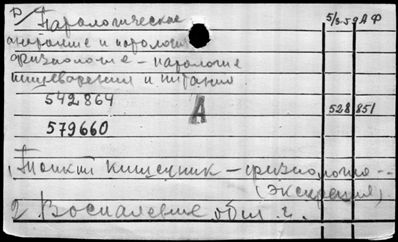 Патологическое 5/3.59 А Ф
анатомия и патологич
физиология – патология
пищеварения и питания
542864 А 528 851
579660
1 Тонкий кишечник – физиология --
(Экскреция)
2 Воспаление общ.